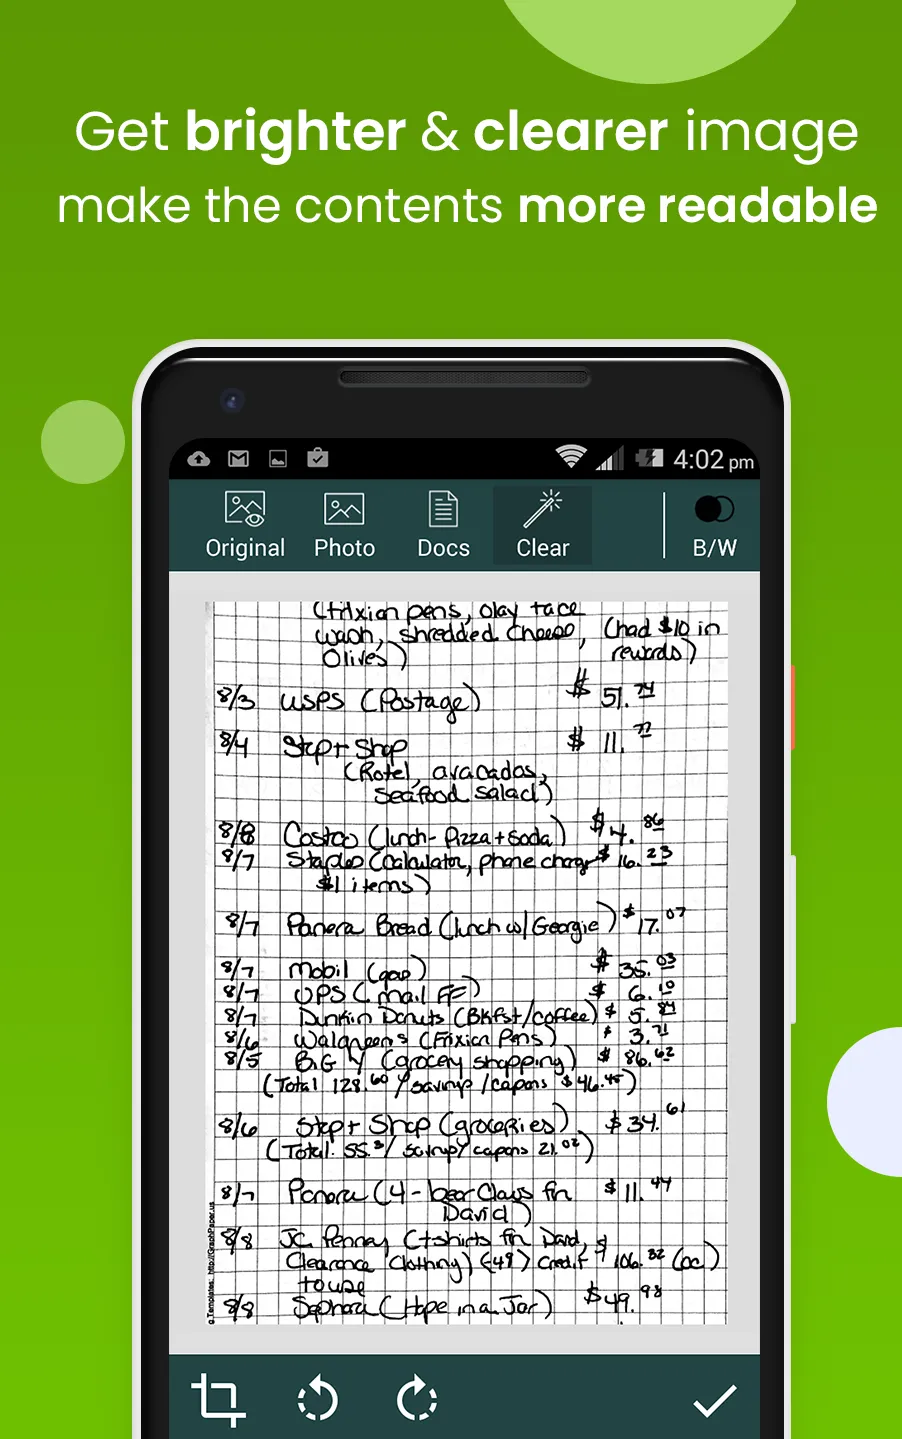 Get brighter & clearer image
make the contents more readable
4:02 pm
Original Photo Docs Clear B/W
(frixion pens, olay face
wash, shredded cheese, (had $10 in
Olives) rewards)
8/3 USPS (Postage) $ 51.74
8/4 Stop + Shop $ 11.77
(Rotel, avacados,
seafood salad)
8/8 Costco (lunch - Pizza + Soda) $4.86
8/7 Staples (calculator, phone charger $16.23
$1 items)
8/7 Panera Bread (lunch w/ Georgie) $17.07
8/7 Mobil (gas) $ 35.03
8/7 UPS (mail FF) $ 6.10
8/7 Dunkin Donuts (Bkfst/coffee) $ 5.84
8/6 Walgreens (Frixion Pens) $ 3.71
8/5 BIG Y (grocery shopping) $ 86.62
(Total 128.60 / savings / capons $46.45)
8/6 Stop + Shop (groceries) $34.61
(Total: 55. / savings/ capons 21.02)
8/7 Panera (4 - bear Claws for $11.44
David)
8/8 JC Penney (t-shirts for David, $
Clearance Clothing) (-49) credit 106.32 (oc)
to use
8/8 Sephora (Hope in a Jar) $49.98
Templates: http://GraphPaper.us